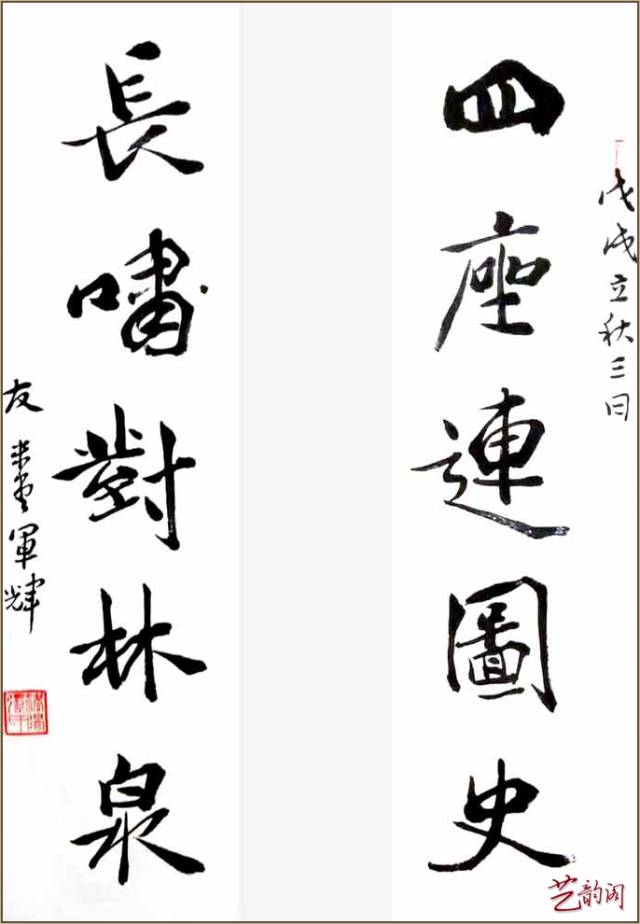 戊戌立秋三日
四座連圖史
長嘯對林泉
友米堂軍輝
艺韵阁